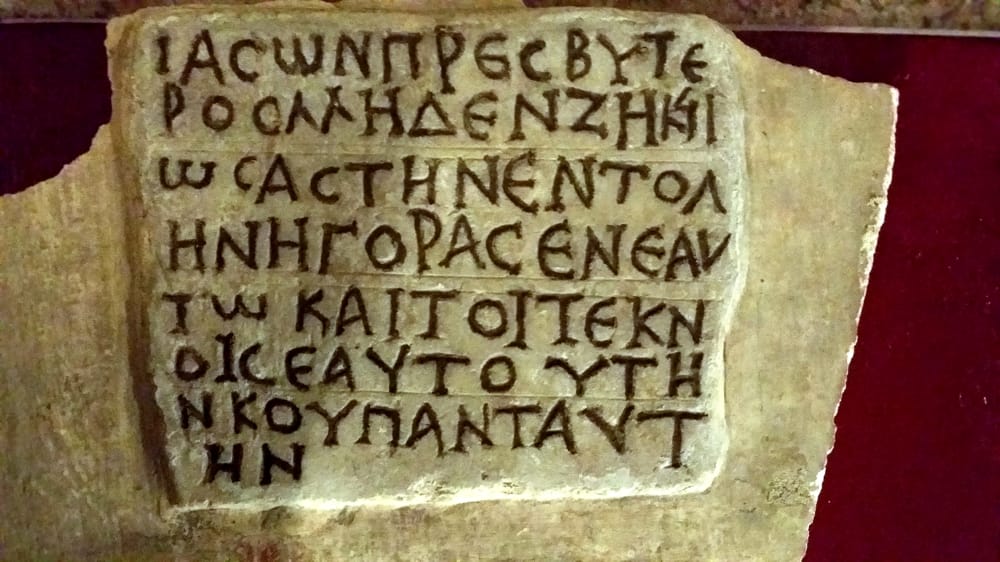 ΙΑCωΝΠΡΕCΒΥΤΕ
ΡΟCΜΗΔΕΝΖΗΜΙ
ωCΑCΤΗΝΕΝΤΟΛ
ΗΝΗΓΟΡΑCΕΝΕΑΥ
ΤωΚΑΙΤΟΙΤΕΚΝ
ΟΙCΕΑΥΤΟΥΤΗ
ΝΚΟΥΠΑΝΤΑΥΤ
ΗΝ